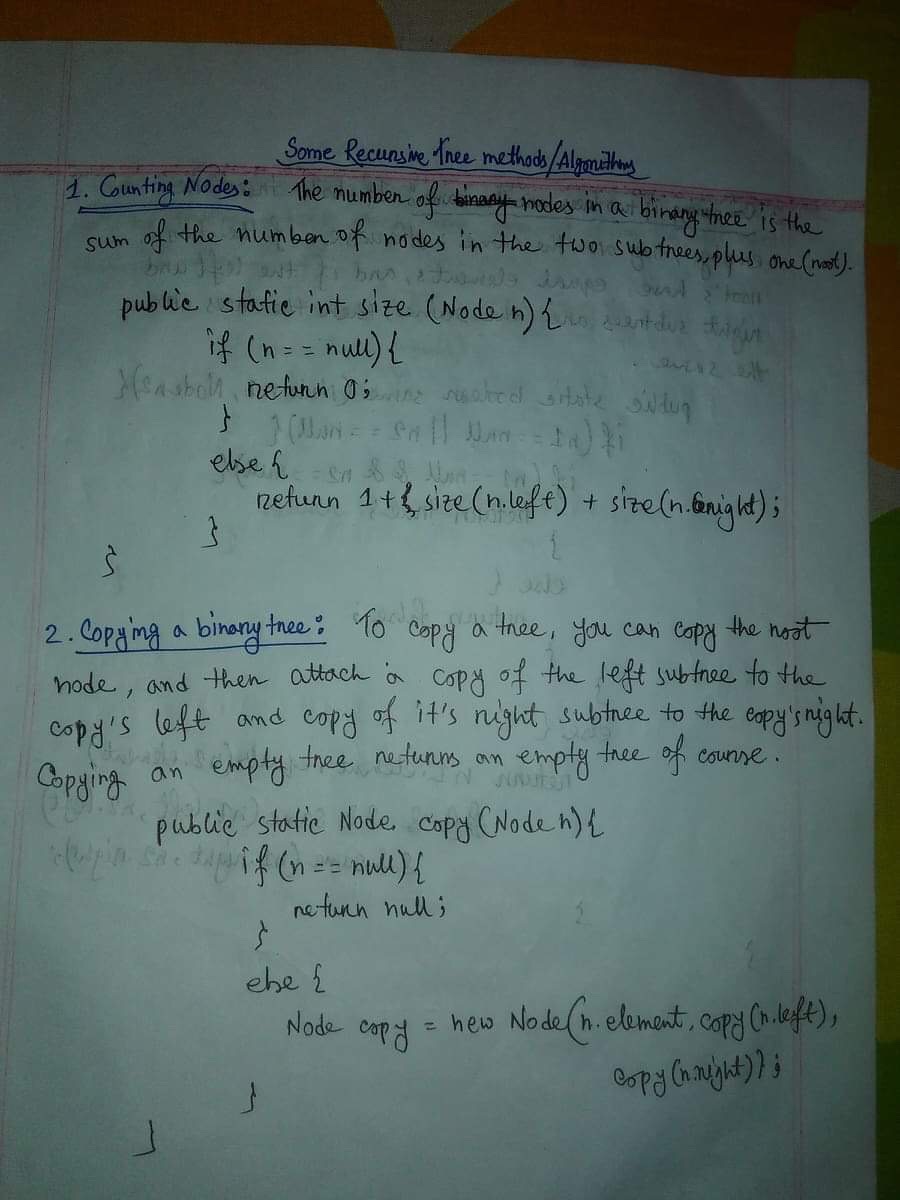 Some Recursive Tree methods/Algorithms
1. Counting Nodes: The number of binary nodes in a binary tree is the
sum of the number of nodes in the two subtrees, plus one (root).
public static int size (Node n) {
if (n == null) {
return 0;
}
else {
return 1 + size(n.left) + size(n.right);
}
}
2. Copying a binary tree: To copy a tree, you can copy the root
node, and then attach a copy of the left subtree to the
copy's left and copy of it's right subtree to the copy's right.
Copying an empty tree returns an empty tree of course.
public static Node copy (Node n) {
if (n == null) {
return null;
}
else {
Node copy = new Node(n.element, copy (n.left),
copy (n.right)};
}
}